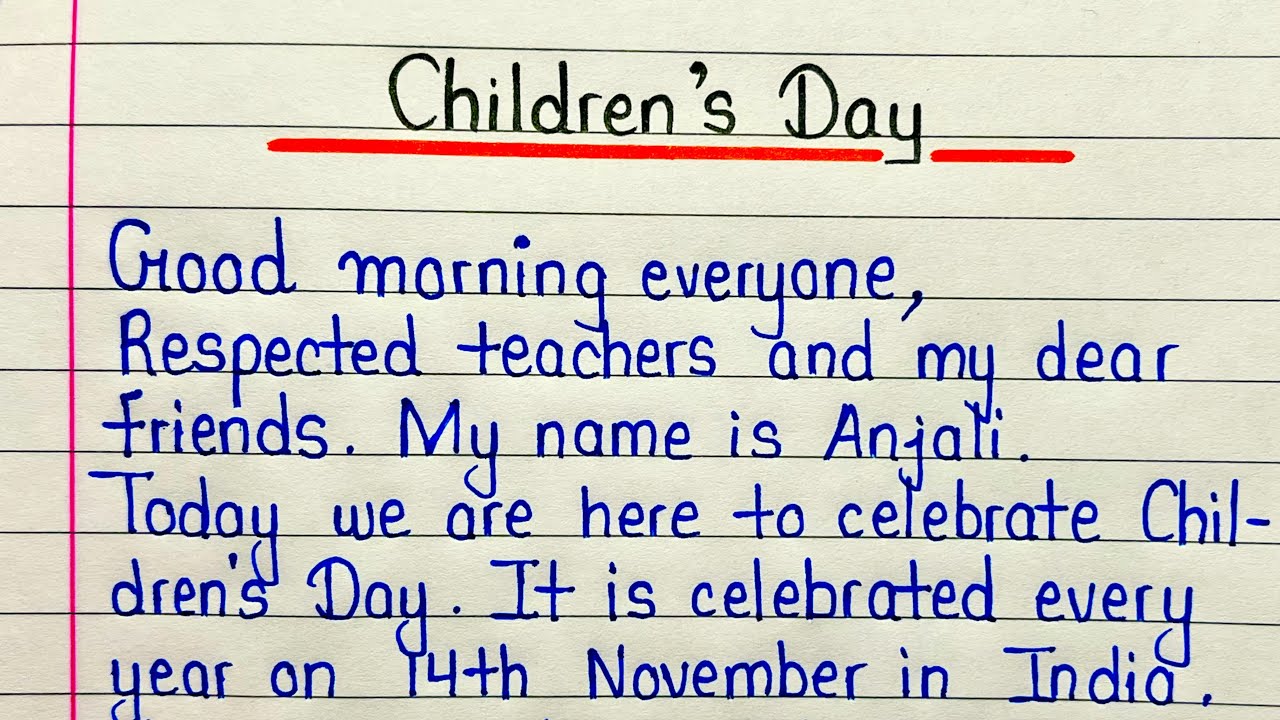 Children's Day
Good morning everyone,
Respected teachers and my dear
friends. My name is Anjali.
Today we are here to celebrate Chil-
dren's Day. It is celebrated every
year on 14th November in India.